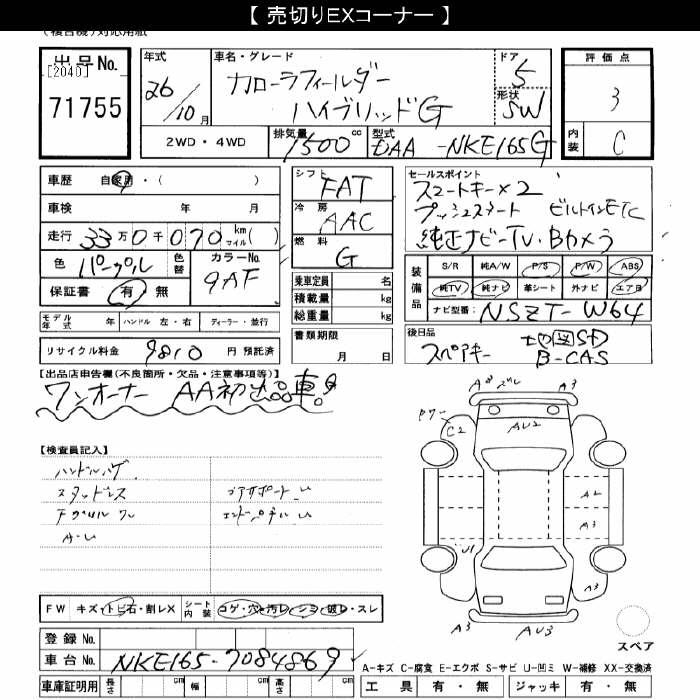 【 売切りEXコーナー 】
(複合機)対応用紙
出品No.
[2040]
71755
年式
26/10月
車名・グレード
カローラフィールダー
ハイブリッドG
ドア
5
形状
SW
評価点
3
内装
C
2WD・4WD
排気量 1500cc
型式 DAA-NKE165G
車歴 自家用・( )
車検 年 月
走行 33万0千070 km マイル( )
色 パープル 色替 カラーNo. 9AF
保証書 有 無
モデル年式 ハンドル 左・右 ディーラー・並行
リサイクル料金 9810 円 預託済
シフト FAT
冷房 AAC
燃料 G
乗車定員 名
積載量 kg
総重量 kg
書類期限
月 日
セールスポイント
スマートキー×2
プッシュスタート ビルトインETC
純正ナビ-TV・Bカメラ
装備品
S/R 純A/W P/S P/W ABS
純TV 純ナビ 革シート 外ナビ エアB
ナビ型番: NSZT-W64
後日品
スペアキー 地図SD
B-CAS
【出品店申告欄(不良箇所・欠品・注意事項等)】
ワンオーナー AA初出品車。
【検査員記入】
ハンドルハゲ
スタッドレス
A-U
FW キズ・トビ石・割レX シート内装 コゲ・穴・汚レ・シミ・破レ・スレ
登録No.
車台No. NKE165-7084869
車庫証明用 長さ cm 幅 cm 高さ cm
A3
C2
AU2
A2
A3
U1
A3
A3
AU3
スペア
A-キズ C-腐食 E-エクボ S-サビ U-凹ミ W-補修 XX-交換済
工具 有・無 ジャッキ 有・無